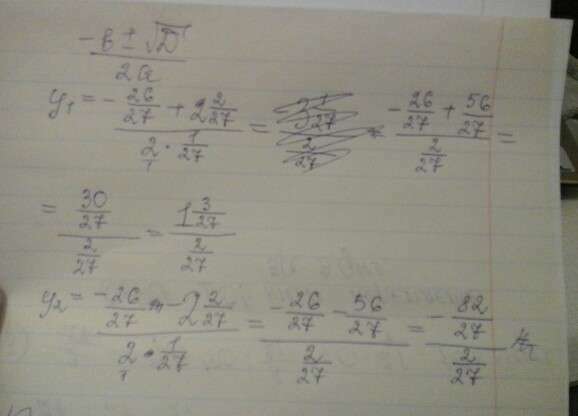 (-в ± √D)/(2a)
y₁ = (-26/27 + 2 2/27)/(2/1 · 1/27) = (-26/27 + 56/27)/(2/27) =
= (30/27)/(2/27) = (1 3/27)/(2/27)
y₂ = (-26/27 - 2 2/27)/(2/1 · 1/27) = (-26/27 - 56/27)/(2/27) = (-82/27)/(2/27)